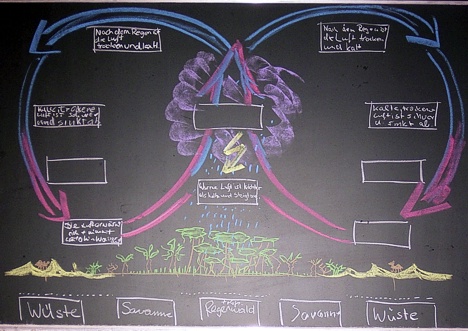 Nach dem Regen ist
die Luft
trocken und kalt
Nach dem Regen ist
die Luft trocken
und kalt
Kalte trockene
Luft ist schwer
und sinkt ab
Kalte trockene
Luft ist schwer
u. sinkt ab.
Warme Luft ist leichter
als kalte und steigt auf
Die Luft erwärmt
sich + nimmt
Wüste
Savanne
trop.
Regenwald
Savanne
Wüste